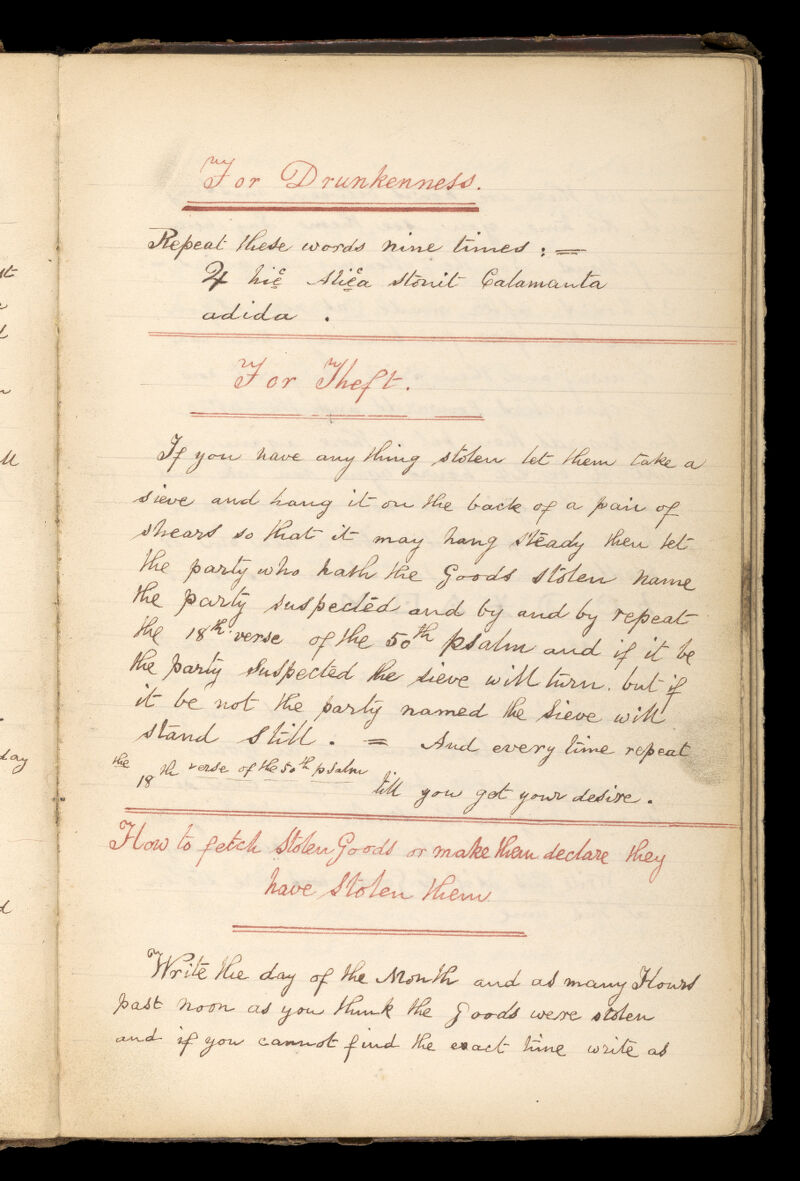 For Drunkenness.
Repeat these words nine times : =
♃ hic slica stonit Calamanta
adida .
For Theft.
If you have any thing stolen let them take a
sieve and hang it on the back of a pair of
shears so that it may hang steady then let
the party who hath the Goods stolen name
the party suspected and by and by repeat
the 18th verse of the 50th psalm and if it be
the party suspected the sieve will turn. but if
it be not the party named the Sieve will
stand still . = And every time repeat
the 18th verse of the 50th psalm till you get your desire .
How to fetch Stolen Goods or make them declare they
have Stolen them
Write the day of the Month and as many Hours
past noon as you think the Goods were stolen
and if you cannot find the exact time write as
st
ll
day
d